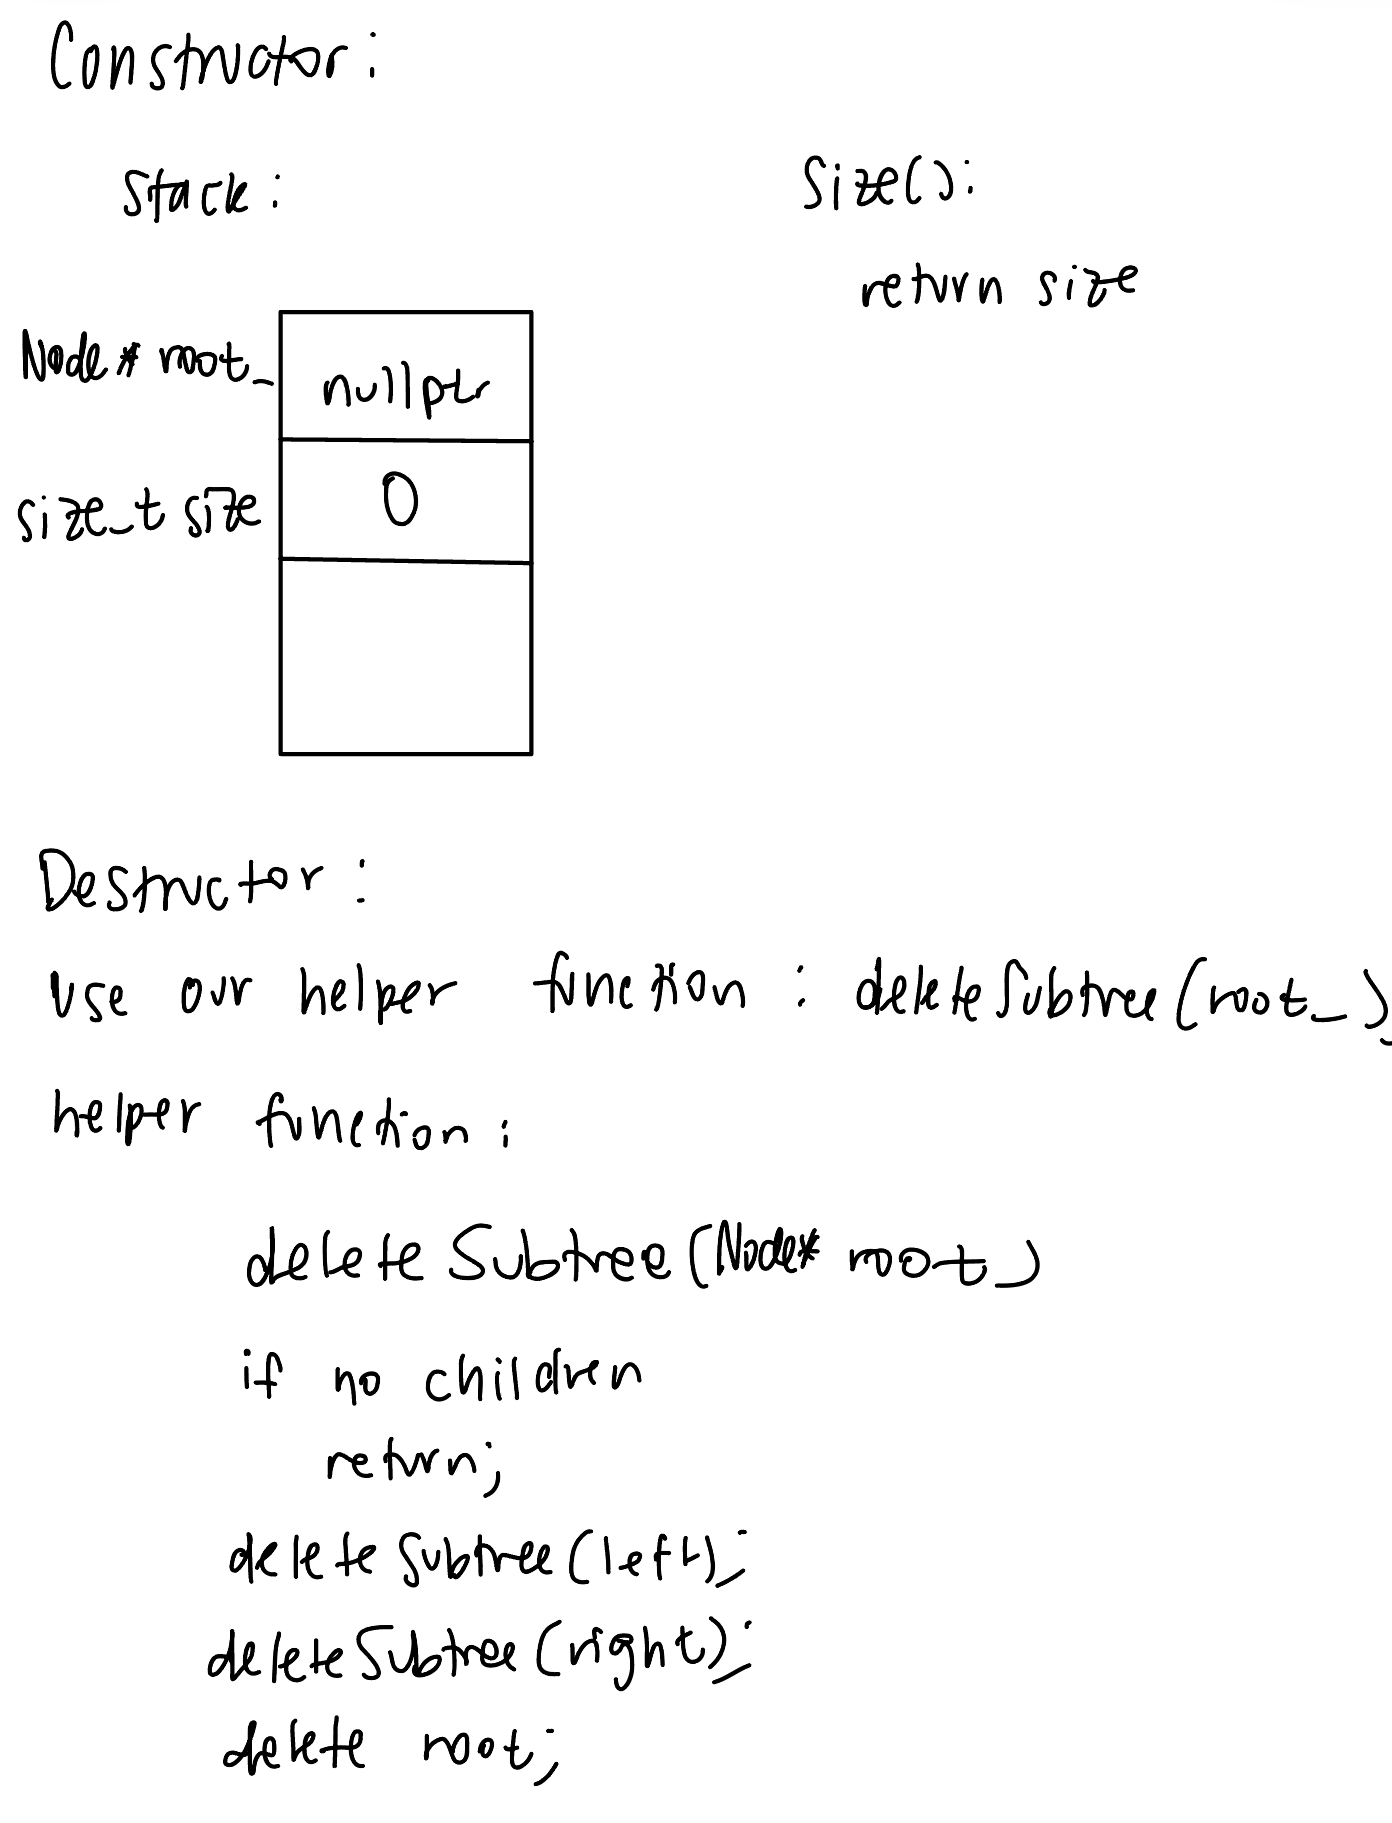 Constructor:
Stack:
Size():
return size
Node* root_
nullptr
size_t size
0
Destructor:
use our helper function : deleteSubtree(root_)
helper function:
deleteSubtree(Node* root)
if no children
return;
deleteSubtree(left);
deleteSubtree(right);
delete root;